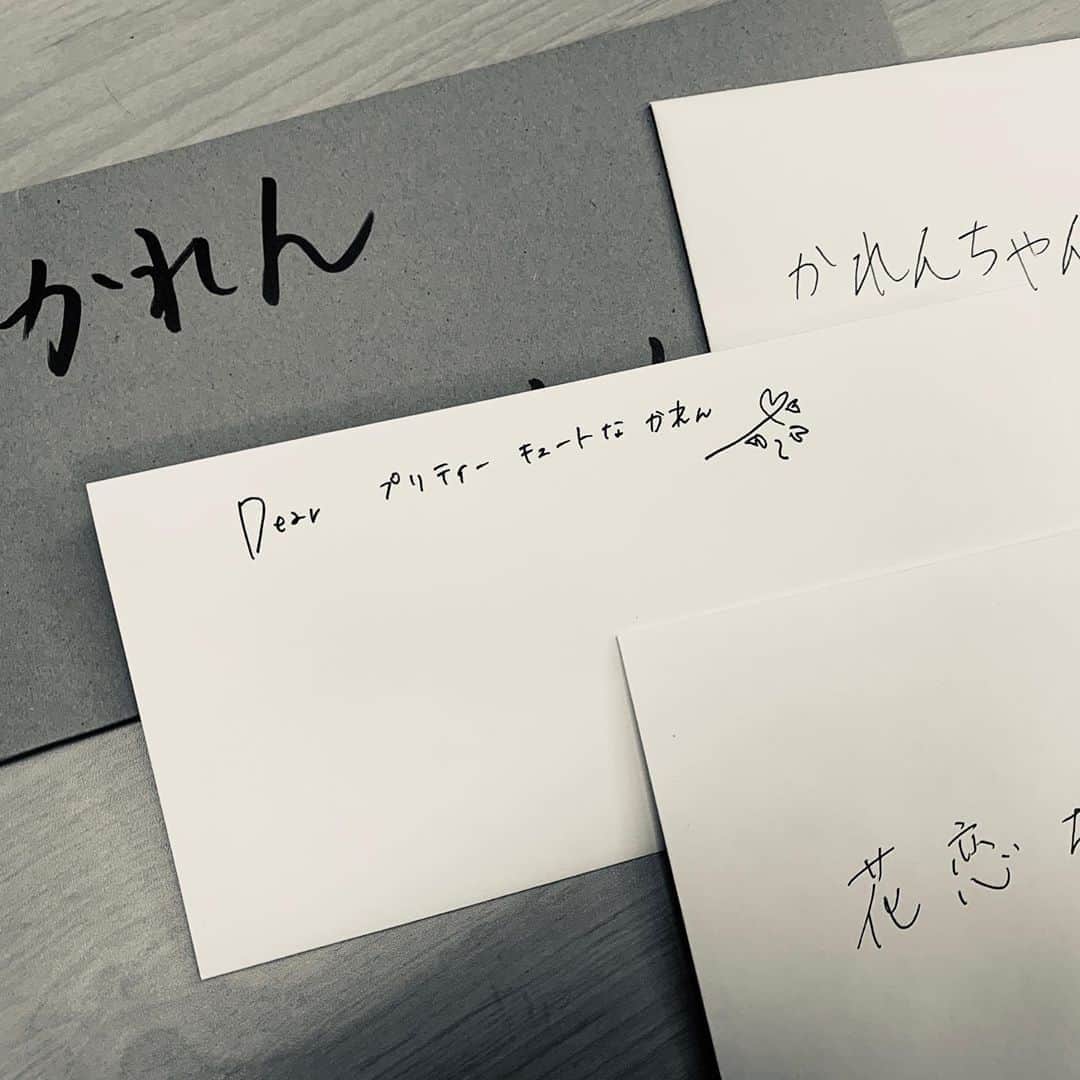 かれん
かれんちゃん
Dear プリティーキュートな かれん
花恋